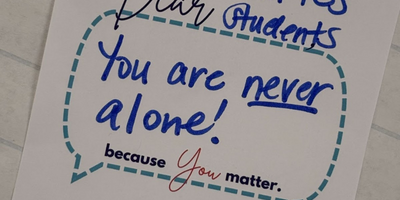 Dear
students
You are never
alone!
because You matter.